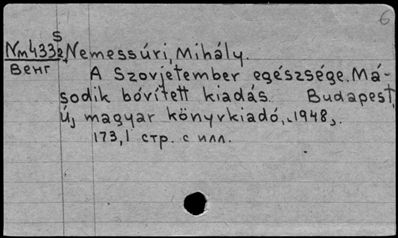 6
s
Nm433e Nemessúri, Mihály.
Венг
A Szovjetember egészsége. Má-
sodik bővített kiadás. Budapest,
Új magyar könyvkiadó, "1948".
173,1 стр. с илл.